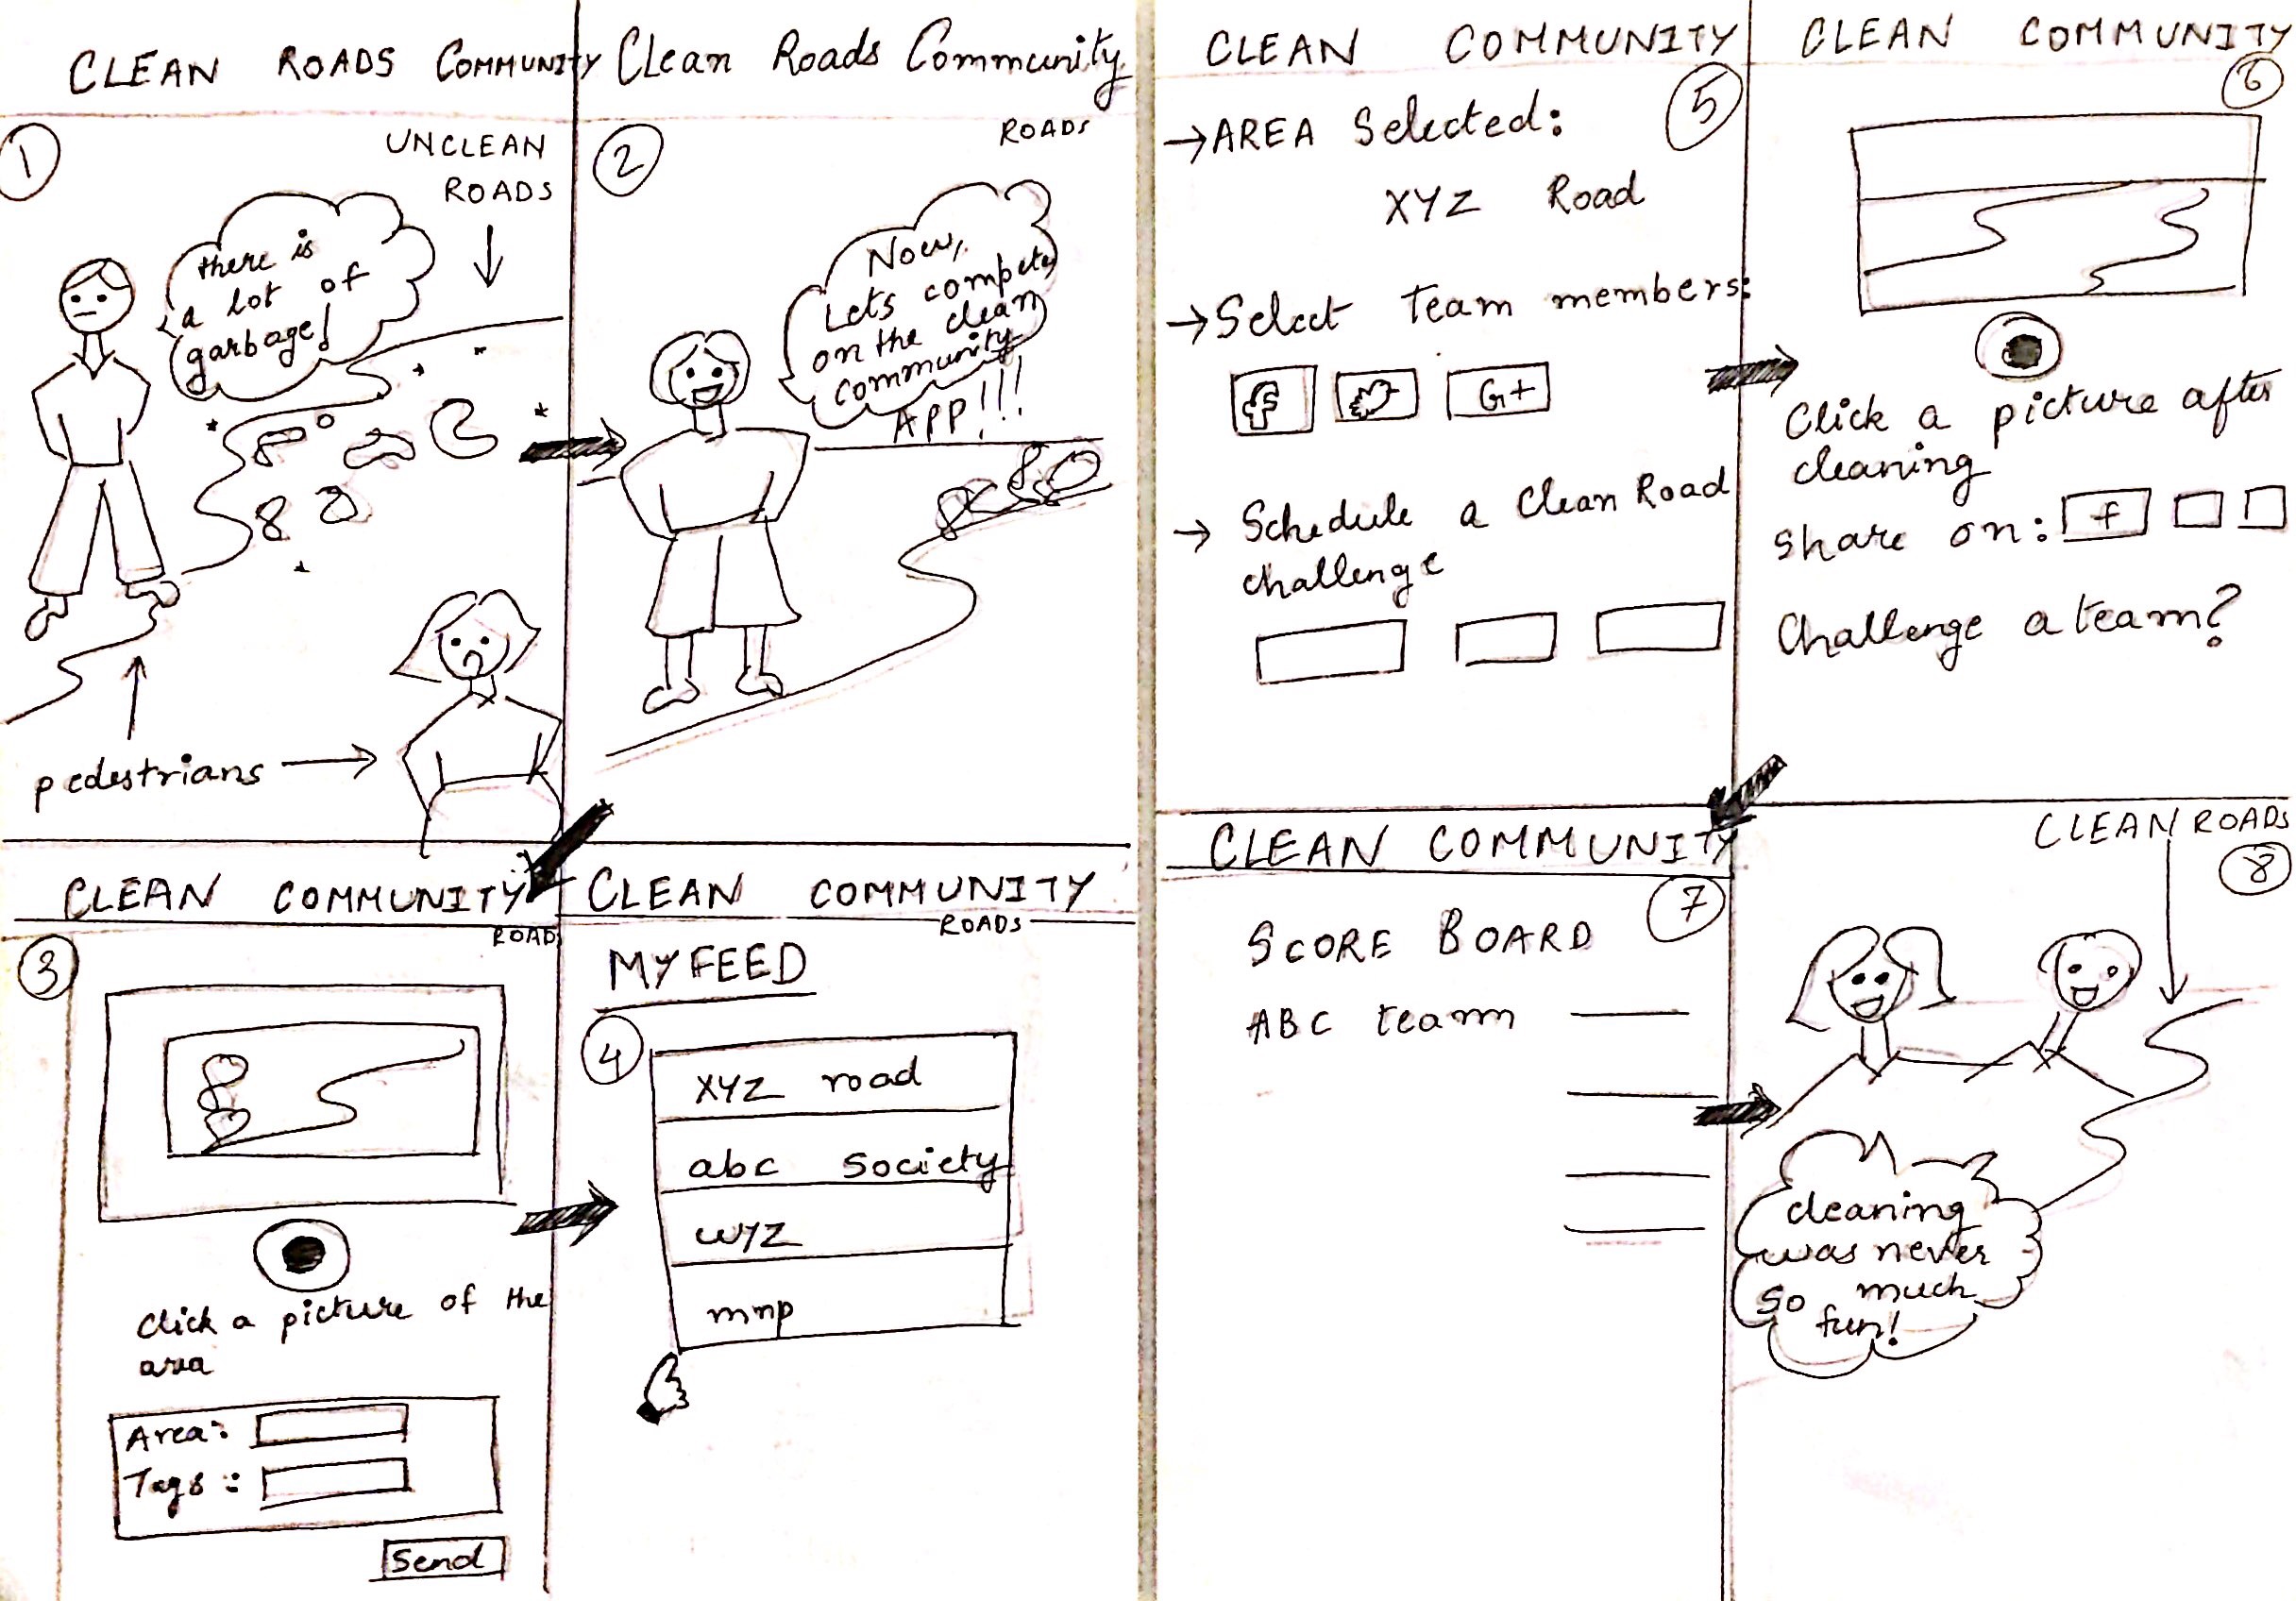 CLEAN ROADS COMMUNITY
1
UNCLEAN
ROADS
there is
a lot of
garbage!
pedestrians
Clean Roads Community
ROADS
2
Now,
Lets compete
on the clean
community
APP!!!
CLEAN COMMUNITY
ROAD
3
Click a picture of the
area
Area:
Tags:
Send
CLEAN COMMUNITY
ROADS
MY FEED
4
XYZ road
abc society
wyz
mnp
CLEAN COMMUNITY
5
→AREA Selected:
XYZ Road
→Select Team members:
f
G+
→ Schedule a Clean Road
challenge
CLEAN COMMUNITY
6
Click a picture after
cleaning
share on: f
Challenge a team?
CLEAN COMMUNITY
7
SCORE BOARD
ABC team
CLEAN ROADS
8
cleaning
was never
so much
fun!